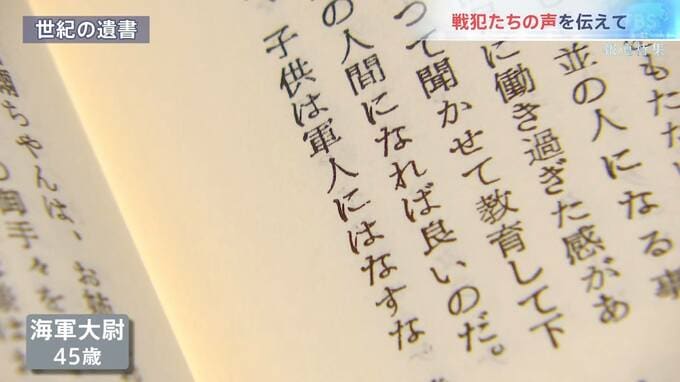 世紀の遺書
戦犯たちの声を伝えて
TBS
報道特集
もたた
並の人になる事
に働き過ぎた感があ
って聞かせて教育して下
の人間になれば良いのだ。
子供は軍人にはなすな
ちゃんは、お姉
の御手々を
海軍大尉
45歳